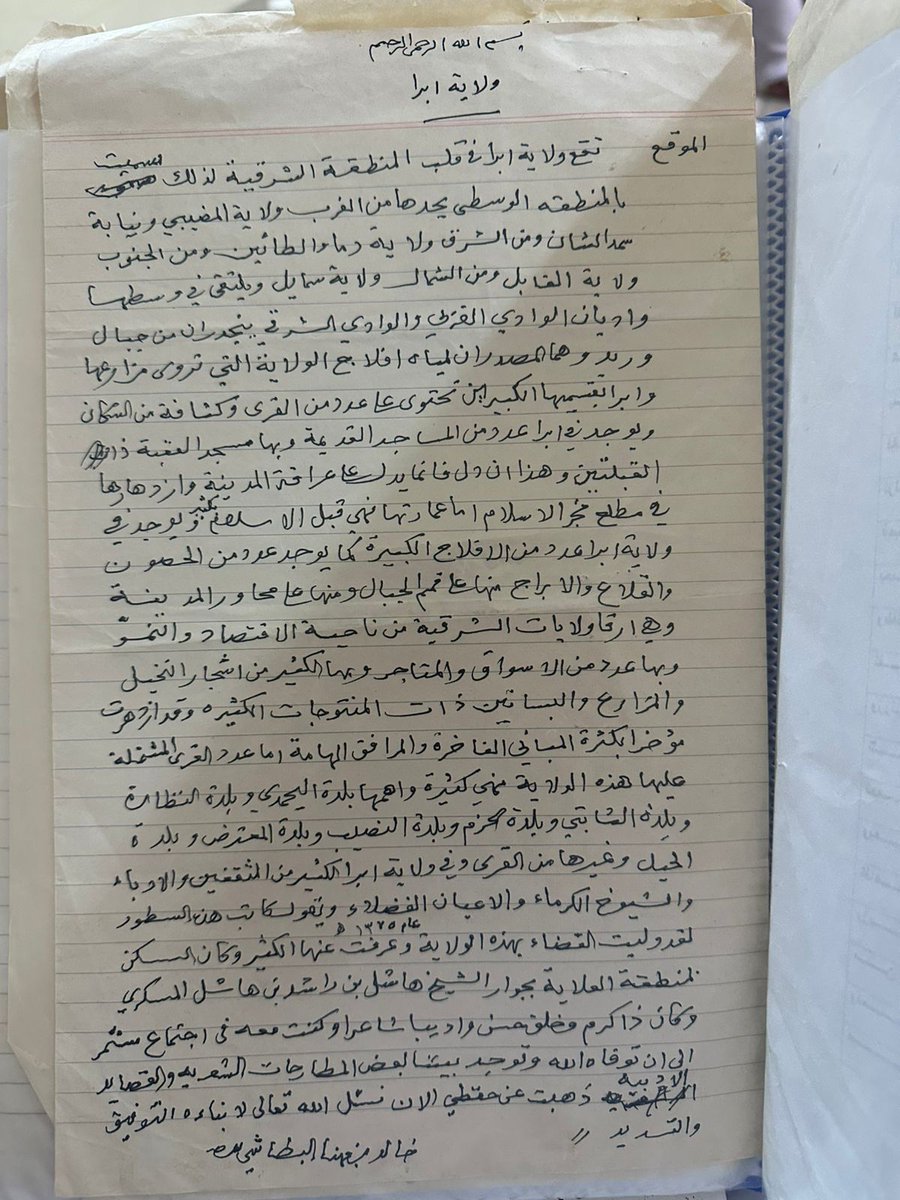 بسم الله الرحمن الرحيم
ولاية ابرا
الموقع تقع ولاية ابرا في قلب المنطقة الشرقية لذلك سميت
بالمنطقه الوسطى يحدها من الغرب ولاية المضيبي ونيابة
سمد الشان ومن الشرق ولاية دماء والطائين ومن الجنوب
ولاية القابل ومن الشمال ولاية سمايل ويلتقي في وسطها
واديان الوادي الغربي والوادي الشرقي ينحدران من جبال
وريد وهما المصدران لمياه افلاج الولاية التي تروى مزارعها
وابرا بقسيمها الكبيرين تحتوى على عدد من القرى وكثافة من السكان
ويوجد في ابرا عدد من المساجد القديمة وبها مسجد العقبة ذات
القبلتين وهذا ان دل فانما يدل على عراقة المدينة وازدهارها
في مطلع فجر الاسلام اما عمارتها فهي قبل الاسلام بكثير ويوجد في
ولاية ابرا عدد من الافلاج الكبيرة كما يوجد عدد من الحصون
والقلاع والابراج منها على قمم الجبال ومنها على محاور المدينة
وهي ارقا ولايات الشرقية من ناحية الاقتصاد والنموّ
وبها عدد من الاسواق والمتاجر وبها الكثير من اشجار النخيل
والمزارع والبساتين ذات المنتوجات الكثيره وقد ازدهرت
مؤخرا بكثرة المباني الفاخرة والمرافق الهامة اما عدد القرى المشتملة
عليها هذه الولاية فهي كثيرة واهمها بلدة اليحمدي وبلدة النظارة
وبلدة الثابتي وبلدة الحزم وبلدة النصيب وبلدة المعترض وبلدة
الجيل وغيرها من القرى وفي ولاية ابرا الكثير من المثقفين والادباء
والشيوخ الكرماء والاعيان الفضلاء ويقول كاتب هذه السطور
لقد وليت القضاء بهذه الولاية عام ١٣٧٥ ه وعرفت عنها الكثير وكان السكن
بمنطقة العلاية بجوار الشيخ هاشل بن راشد بن هاشل المسكري
وكان ذا كرم وخلق حسن واديبا شاعرا وكنت معه في اجتماع مستمر
الى ان توفاه الله وتوجد بيننا بعض المطارحات الشعريه والقصايد
الادبية ذهبت عن حفظي الان نسئل الله تعالى لابناءه التوفيق
والتسديد //
خالد بن مهنا البطاشي